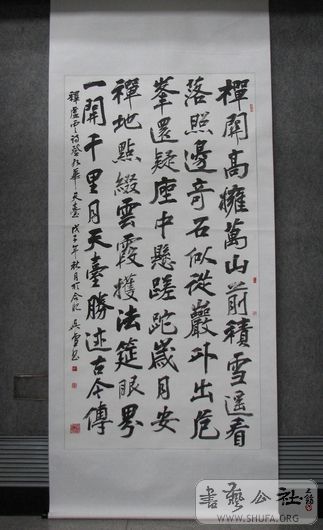 禪開高擁萬山前積雪遙看
落照邊奇石似從巖外出危
峯還疑座中懸蹉跎歲月安
禪地點綴雲霞擭法筵眼界
一開千里月天臺勝迹古今傳
釋虛雲詩登九華天臺 戊子年秋月於合肥 吳雪書
書藝公社
WWW.SHUFA.ORG